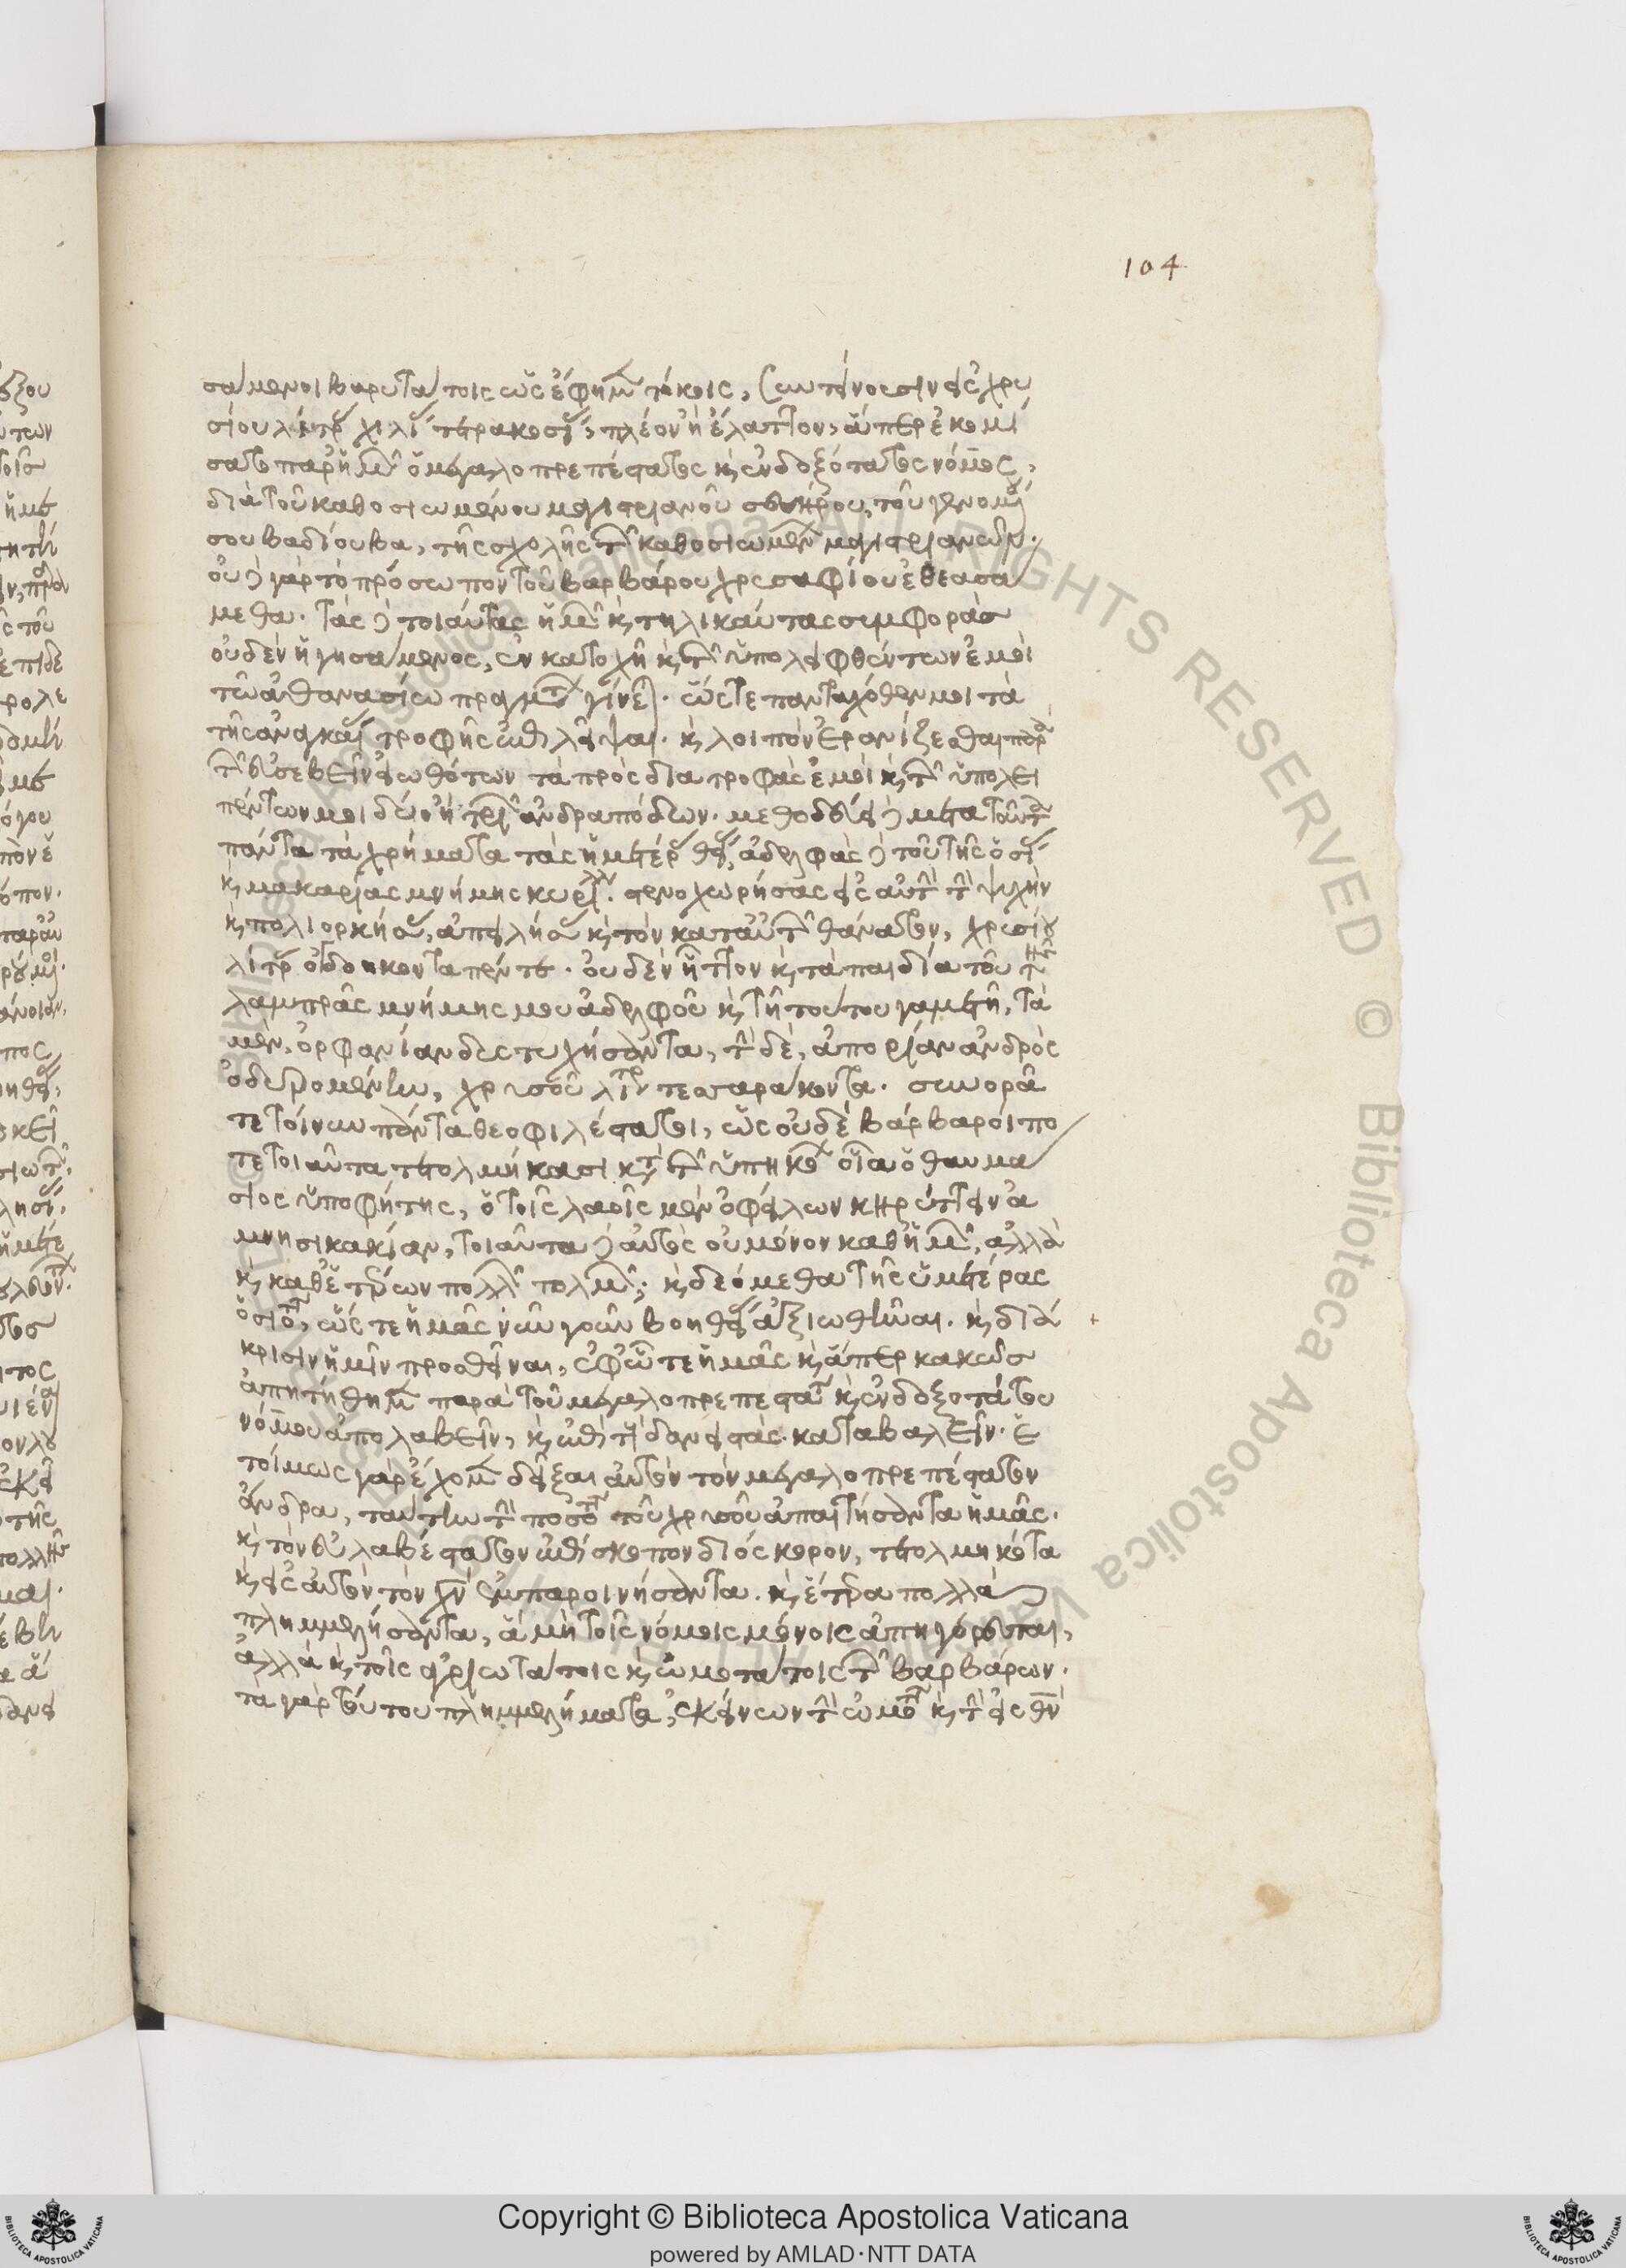 104
σάμενοι βαρυτάτοις ὡς ἔφημεν τόκοις, συντείνουσιν εἰς χρυ
σίου λίτρας χιλίας τετρακοσίας, πλέον ἢ ἔλαττον, ἅπερ ἐκομί
σατο παρ' ἡμῶν ὁ μεγαλοπρεπέστατος καὶ ἐνδοξότατος νόμος,
διὰ τοῦ καθοσιωμένου μαγιστριανοῦ σευήρου, τοῦ γενομένου
σουβαδιούβα, τῆς σχολῆς τῶν καθοσιωμένων μαγιστριανῶν.
οὐ δὲ γὰρ τὸ πρόσωπον τοῦ βαρβάρου χρυσαφίου ἐθεασά
μεθα. τὰς δὲ τοιαύτας ἡμῶν καὶ τηλικαύτας συμφορὰς
οὐδὲν ἡγησάμενος, ἐν κατοχῇ καὶ τῶν ὑπολειφθέντων ἐμοὶ
τῷ ἀθανασίῳ πραγμάτων γίνεται. ὥστε πανταχόθεν μοι τὰ
τῆς ἀναγκαίας τροφῆς ἐπιλεῖψαι. καὶ λοιπὸν ἐρανίζεσθαι παρὰ
τῶν εὐσεβεῖν εἰωθότων τὰ πρὸς διατροφὰς ἐμοὶ καὶ τῶν ὑπολει
πέντων μοι δύο ἢ τριῶν ἀνδραπόδων. μεθοδεύει δὲ μετὰ ταῦτα
πάντα τὰ χρήματα τὰς ἡμετέρας θείας, ἀδελφὰς δὲ τοῦ τῆς ὁσίας
καὶ μακαρίας μνήμης κυρίλλου. στενοχωρήσας εἰς αὐτὴν τὴν ψυχὴν
καὶ πολιορκήσας, ἀπειλήσας καὶ τὸν κατ' αὐτῶν θάνατον, χρυσίου
λίτρας ὀγδοήκοντα πέντε. οὐδὲν ἧττον καὶ τὰ παιδία τοῦ τῆς
λαμπρᾶς μνήμης μου ἀδελφοῦ καὶ τῇ τούτου γαμετῇ, τὰ
μὲν, ὀρφανίαν δυστυχήσαντα, τὴν δὲ, ἀπουσίαν ἀνδρὸς
ὀδυρομένην, χρυσοῦ λίτρας τεσσαράκοντα. συνορᾶ
τε τοίνυν πάντα θεοφιλέστατοι, ὡς οὐδὲ βάρβαροί πο
τε τοιαῦτα τετολμήκασι κατὰ τῶν ὑπηκόων οἷα ὁ θαυμά
σιος ὑποφήτης, ὁ τοῖς λαοῖς μὲν ὀφείλων κηρύττειν ἀ
μνησικακίαν, τοιαῦτα δὲ αὐτὸς οὐ μόνον καθ' ἡμῶν, ἀλλὰ
καὶ καθ' ἑτέρων πολλῶν τολμῶν, καὶ δεόμεθα τῆς ὑμετέρας
ὁσιότητος, ὥστε ἡμᾶς νῦν γοῦν βοηθείας ἀξιωθῆναι. καὶ διά
κρισιν ἡμῖν προσθεῖναι, ἐφ' ᾧ τε ἡμᾶς καὶ ἅπερ κακῶς
ἀπῃτήθημεν παρὰ τοῦ μεγαλοπρεπεστάτου καὶ ἐνδοξοτάτου
νόμου ἀπολαβεῖν, καὶ ἐπὶ τῷ δανειστὰς καταβαλεῖν. ἑ
τοίμως γὰρ ἔχομεν δεῖξαι αὐτὸν τὸν μεγαλοπρεπέστατον
ἄνδρα, ταύτην τὴν ποσότητα τοῦ χρυσοῦ ἀπαιτήσαντα ἡμᾶς.
καὶ τὸν εὐλαβέστατον ἐπίσκοπον διόσκορον, τετολμηκότα
καὶ εἰς αὐτὸν τὸν χν ἐμπαροινήσαντα. καὶ ἕτερα πολλὰ
πλημμελήσαντα, ἃ μὴ τοῖς νόμοις μόνοις ἀπηγόρευται,
ἀλλὰ καὶ τοῖς ἀγριωτάτοις καὶ ὠμοτάτοις τῶν βαρβάρων.
τὰ γὰρ τούτου πλημμελήματα, ἐκείνων τὴν ὠμότητα καὶ τὴν εἰς θν
Copyright © Biblioteca Apostolica Vaticana
powered by AMLAD·NTT DATA